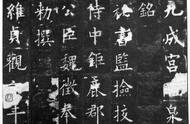 九成宮泉
銘
祕書監檢校
侍中鉅鹿郡
公臣魏徵奉
勅撰
維貞觀年